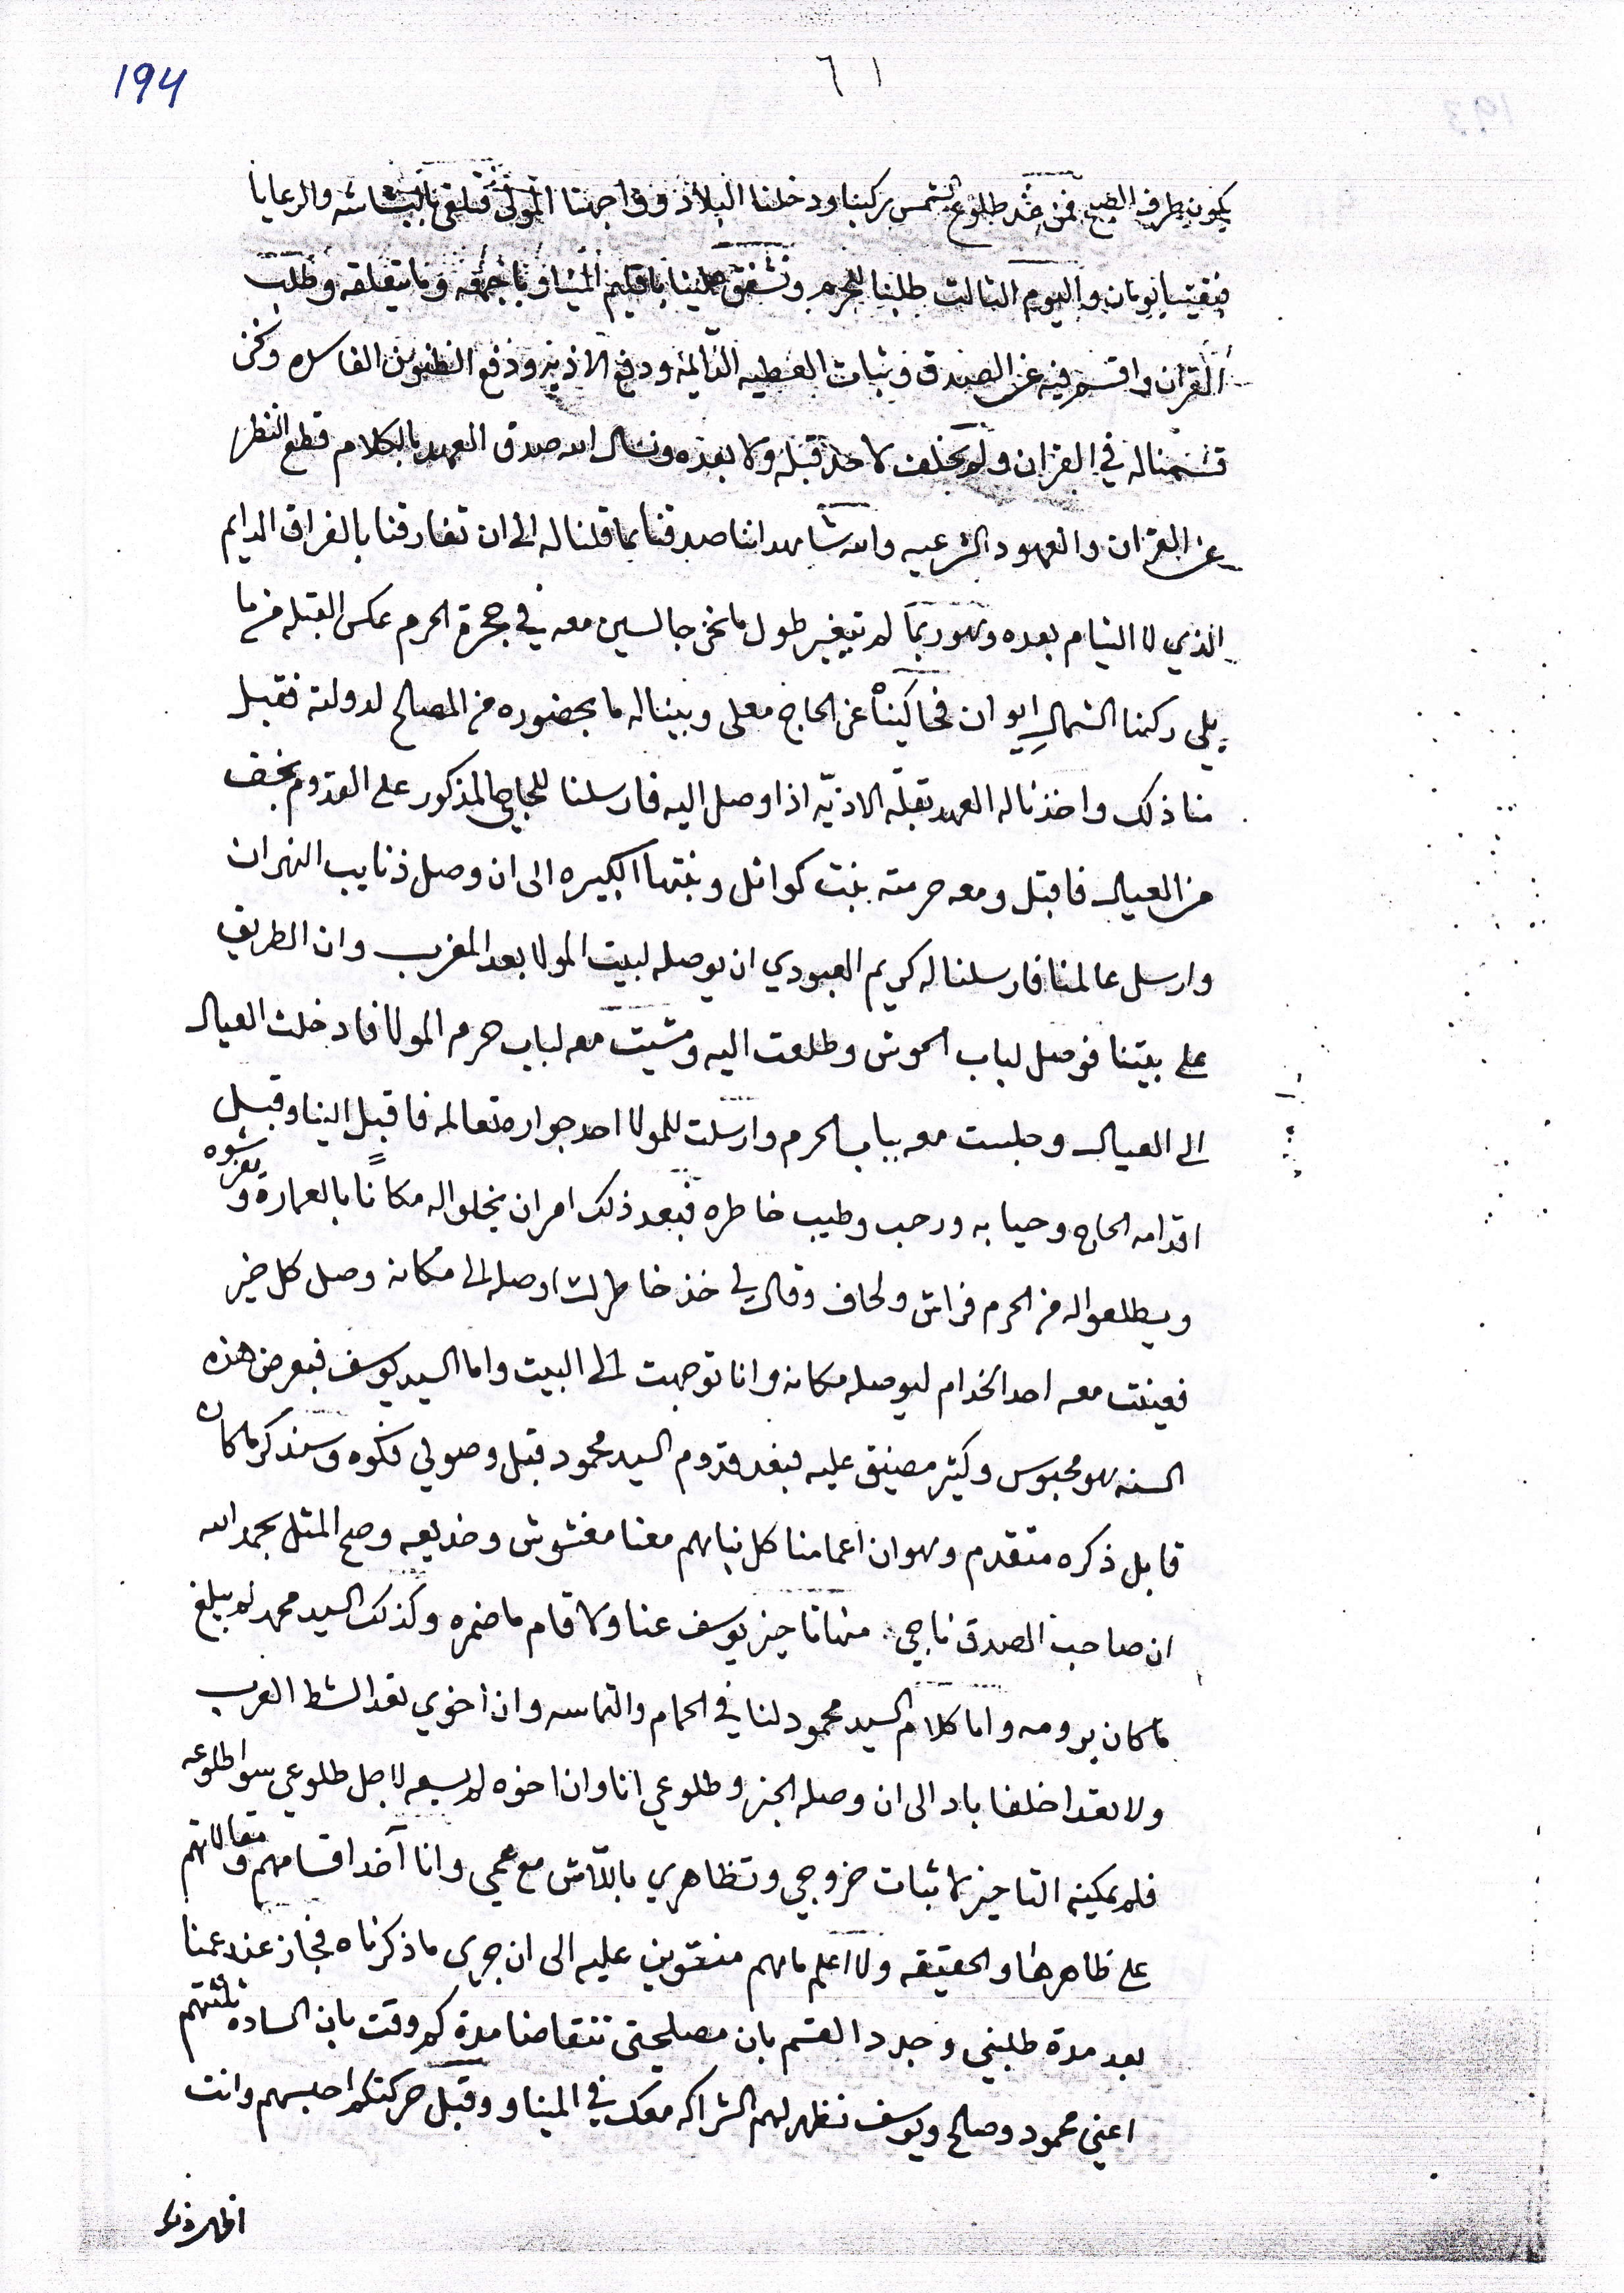 194
٦١
يكون بطرف الصبح فمن عند طلوع الشمس ركبنا ودخلنا البلاد وواجهنا المولى فتلقى بالبشاشه والرعايا
فبقينا يومان واليوم الثالث طلبنا للحرم وتشفق علينا باقليم الميناو باجمعه وما يتعلقه وطلب
القران واقسم فيه عن الصدق وثبات العطيه الدايمة ودفع الاذيه ودفع الظنون الفاسده ونحن
قسمناله في القران ولم يحلف لاحد قبله ولا بعده ونسال الله صدق العهد بالكلام قطع النظر
عن القران والعهود الشرعيه والله شاهد اننا صدقنا بما قلناله الى ان تفارقنا بالفراق الدايم
الذي لا التيام بعده وهو ربما لم تيغير طول ما نحن جالسين معه في حجرة الحرم عكس القبله من ما
يلي ركنها الشمالي ايوان فحاكيناه عن الحاج معلى وبيناله ما بحضوره من المصالح لدولته فقبل
منا ذلك واخذنا له العهد بقلة الاذيّه اذا وصل اليه فارسلنا للحاج المذكور على القدوم بخف
من العيال فاقبل ومعه حرمته بنت كوائل وبنتها الكبيره الى ان وصل ذنايب النهران
وارسل عالمنا فارسلنا له كريم العبودي ان يوصله لبيت المولا بعد المغرب وان الطريق
على بيتنا فوصل لباب الحوش وطلعت اليه ومشيت معه لباب حرم المولا فادخلت العيال
الى العيال وجلست معه بباب الحرم وارسلت للمولا احد جواره تعالمه فاقبل الينا وقبل
اقدامه الحاج وحيا به ورحب وطيب خاطره فبعد ذلك امر ان يخلو له مكاناً بالعمارة ويفرشوه
ويطلعواله من الحرم فراش ولحاف وقال لي خذ خاطرك اوصله الى مكانه وصل كل خير
فعينت معه احد الخدام ليوصله مكانه وانا توجهت الى البيت واما السيد يوسف فبعرض هذه
السنه هو محبوس وكثير مضيق عليه فبعد قدوم السيد محمود قبل وصولي فكوه وسنذكر ما كان
قابل ذكره متقدم وهو ان اعمامنا كل نباهم معنا مغشوش وخديعه وصح المثل بحمد الله
ان صاحب الصدق ناجي. منها تاخير يوسف عنا ولا قام ما ضمره وكذلك السيد محمد لم يبلغ
ما كان يرومه واما كلام السيد محمود لنا في الحمام والتماسه وان اخوي بقد الشط الغرب
ولا بقد اخلفا باد الى ان وصله الخبر وطلوعي انا وان اخوه لم يسعه لاجل طلوعي سوا طلوعه
فلم يمكنه التاخير لما ثبات خروجي وتظاهري باللاش مع عمي وانا آخد اقسامهم ومقالاتهم
على ظاهرها والحقيقه ولا اعلم ما هم منتوين عليه الى ان جرى ما ذكرناه فجاز عند عمنا
بعد مدة طلبني وجدد القسم بان مصلحتى تتقاضا مدة كم وقت بان الساده ثلثتهم
اعني محمود وصالح ويوسف نظهر لهم الشراكه معك في الميناو وقبل حركتكم احبسهم وانت
اظهر ذلك